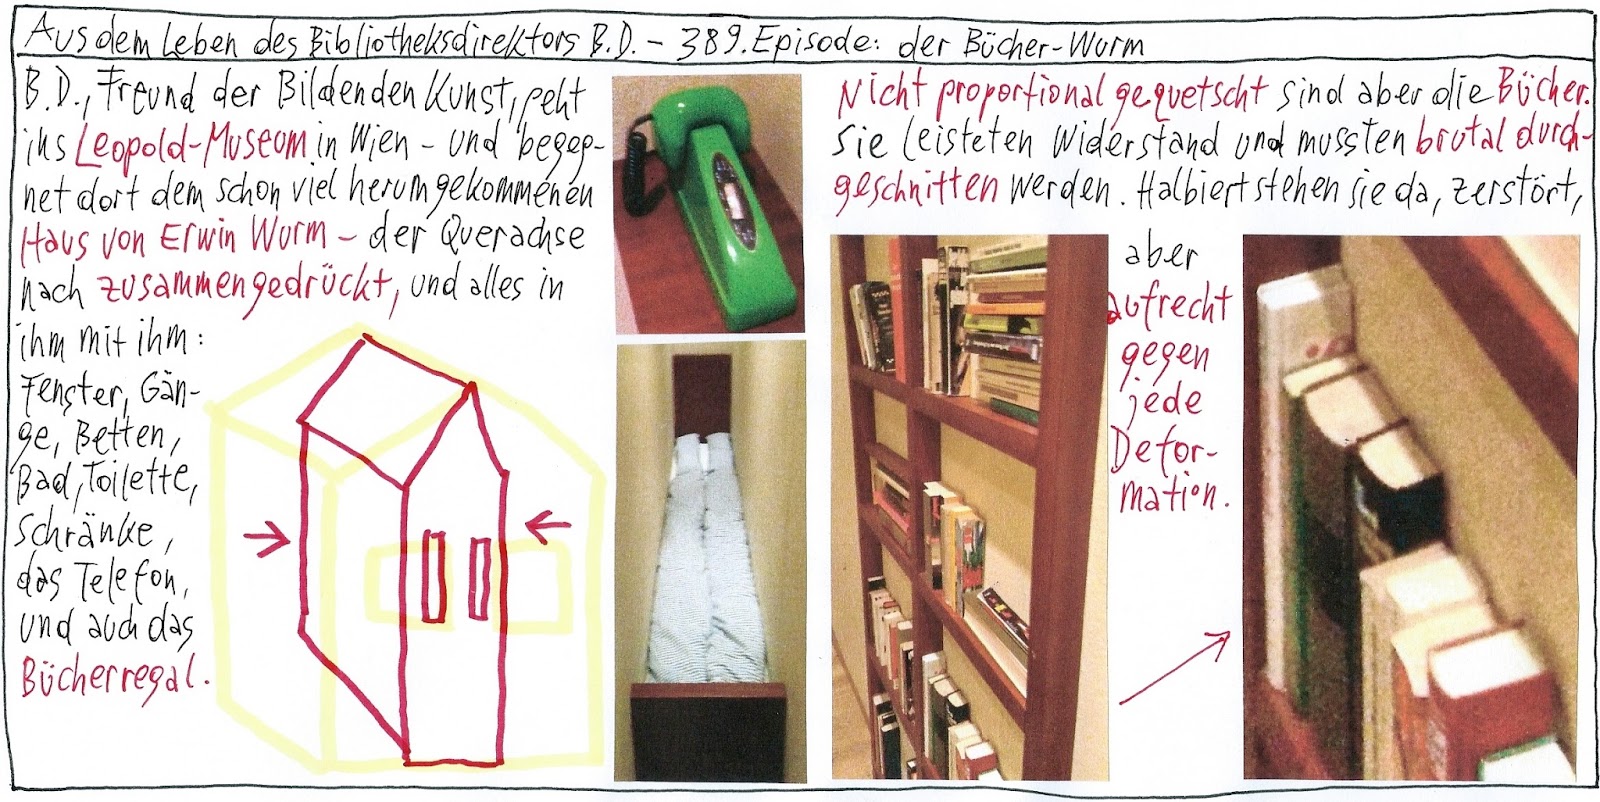 Aus dem Leben des Bibliotheksdirektors B.D. – 389. Episode: der Bücher-Wurm
B.D., Freund der Bildenden Kunst, geht
ins Leopold-Museum in Wien – und begeg-
net dort dem schon viel herumgekommenen
Haus von Erwin Wurm – der Querachse
nach zusammengedrückt, und alles in
ihm mit ihm:
Fenster, Gän-
ge, Betten,
Bad, Toilette,
Schränke,
das Telefon,
und auch das
Bücherregal.
Nicht proportional gequetscht sind aber die Bücher.
Sie leisteten Widerstand und mussten brutal durch-
geschnitten werden. Halbiert stehen sie da, zerstört,
aber
aufrecht
gegen
jede
Defor-
mation.